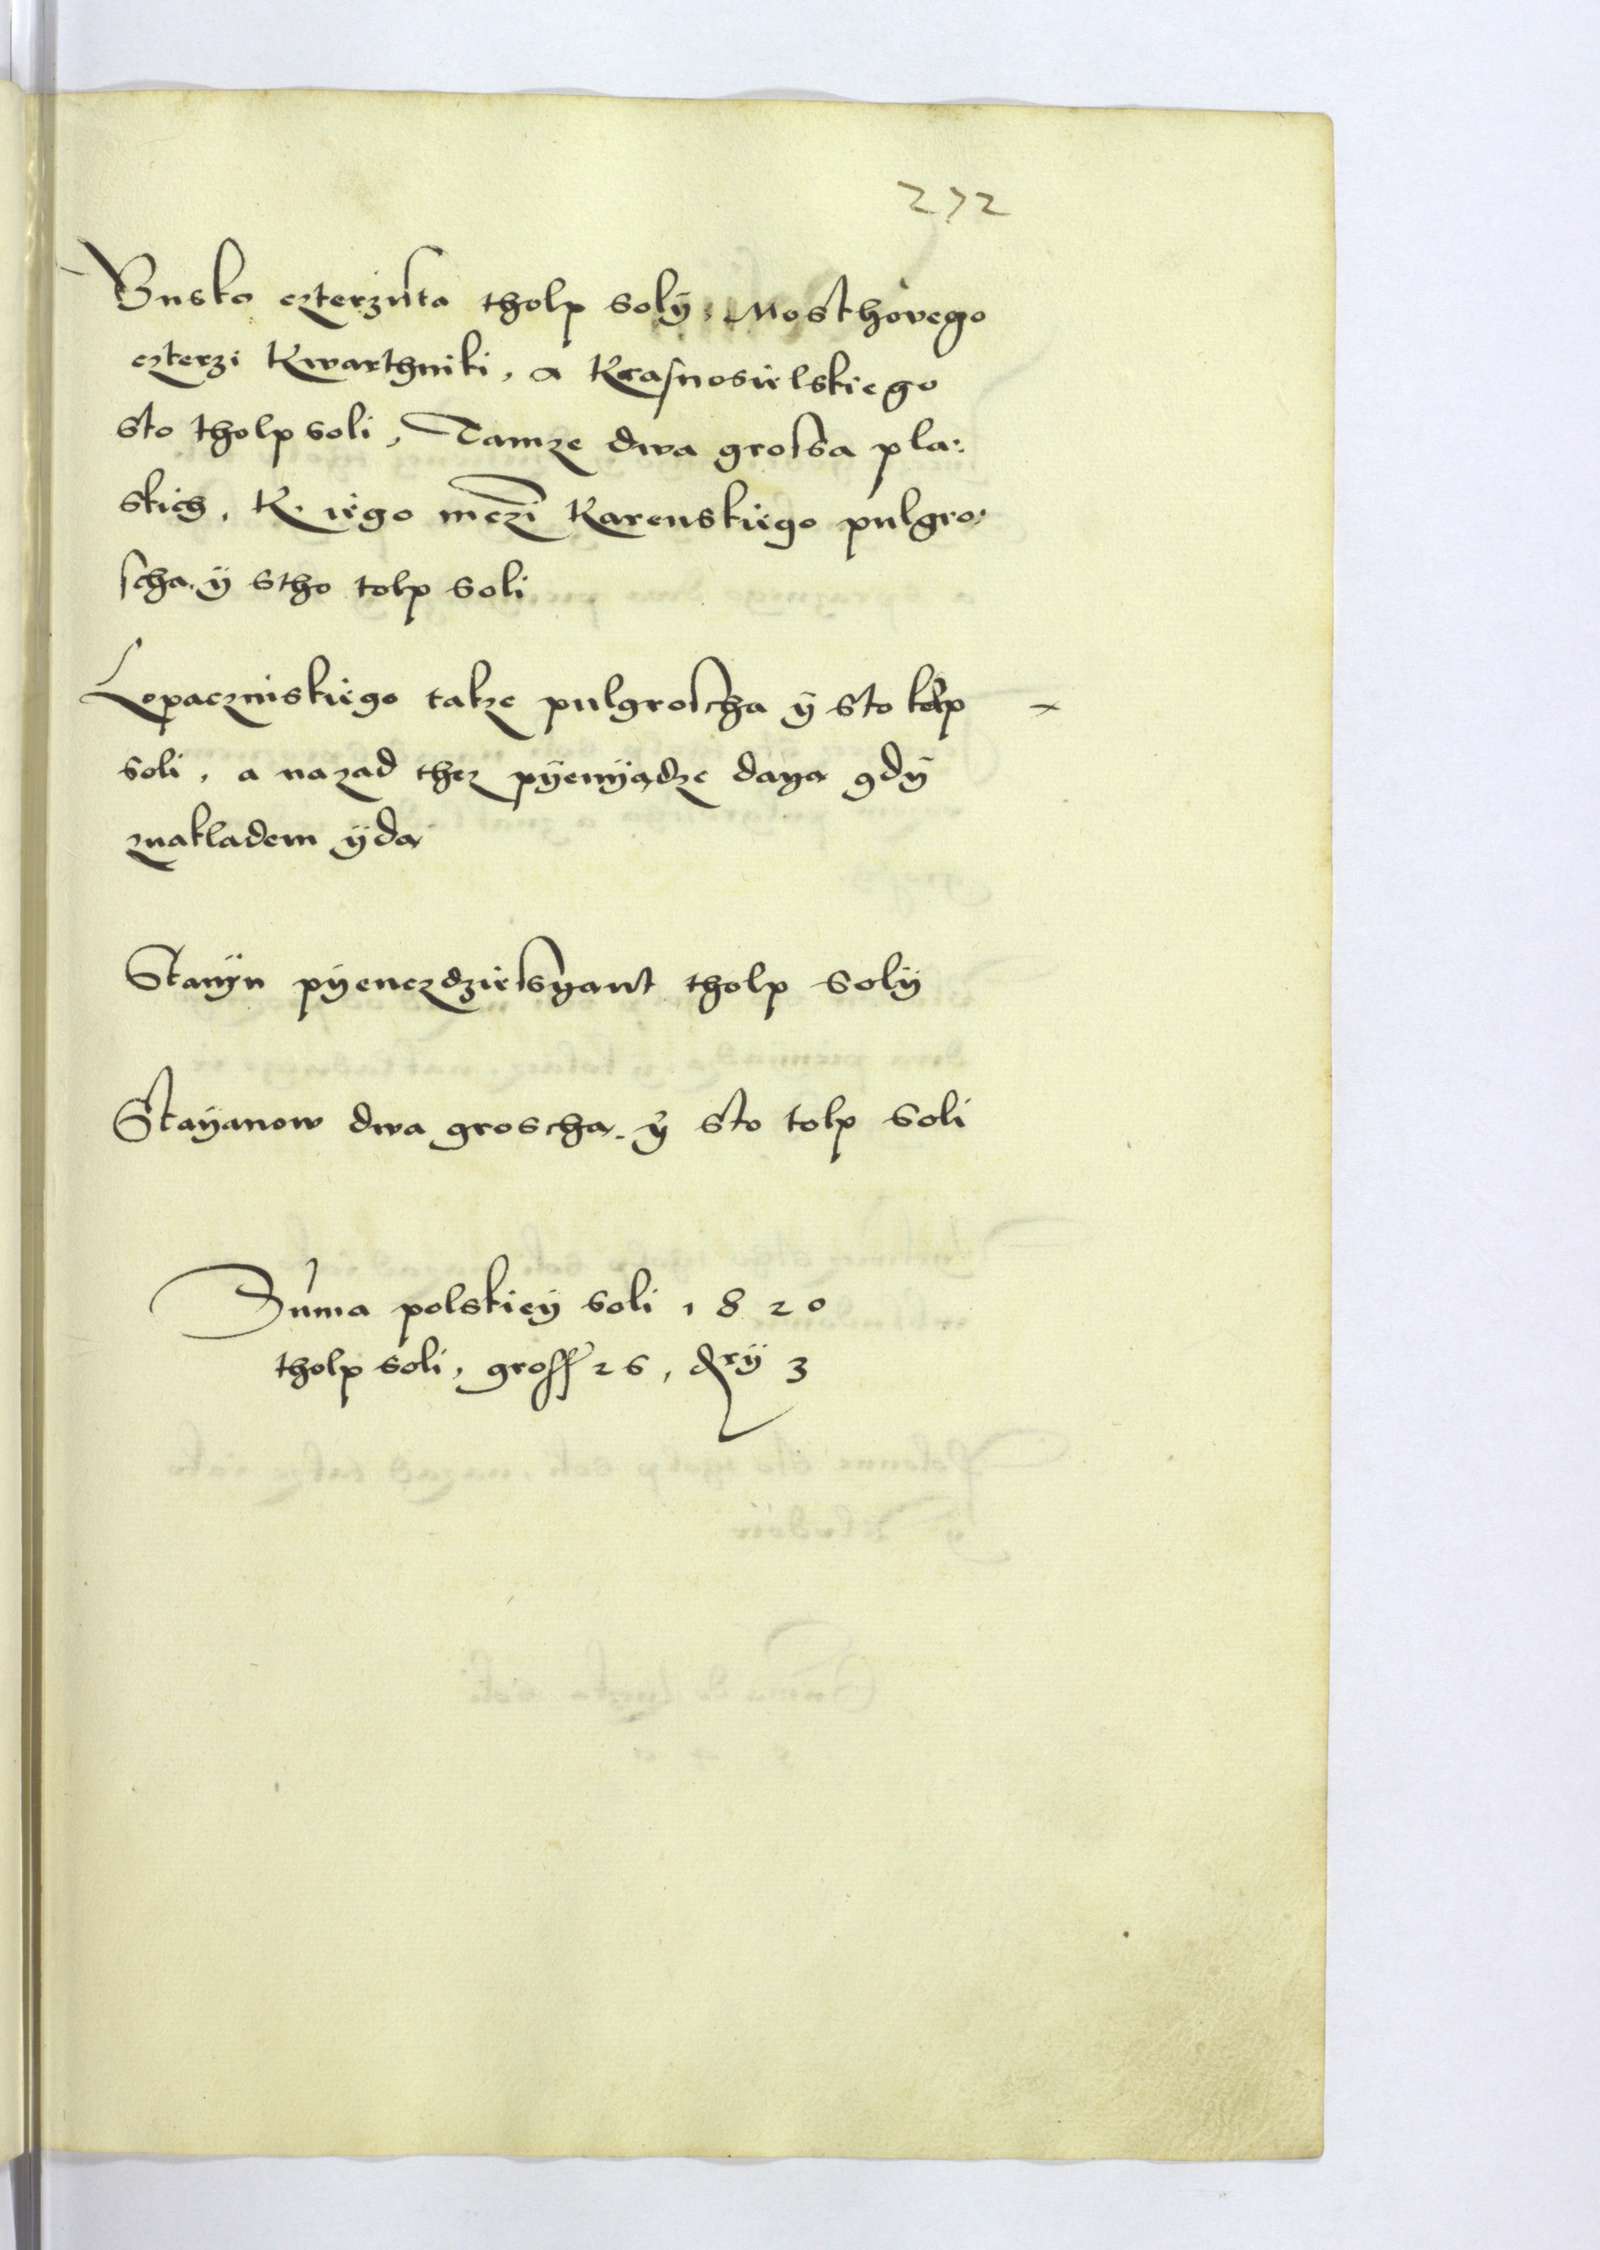 272
Busko czterzsta tholp solÿ, Mosthovego
czterzi Kwarthniki, a Krasnosielskiego
sto tholp soli, Tamze dwa grossa pla:
skich, K. iego mczi Karenskiego pulgro:
scha ÿ stho tolp soli
Lopaczniskiego takze pulgroscha ÿ sto tolp
soli, a nazad thez pÿenÿadze daya gdÿ
znakladem ÿda
Stanÿn pÿenczdziesyant tholp solÿ
Stayanow dwa groscha ÿ sto tolp soli
Suma polskieÿ soli 1820
tholp soli, gross 26, 3